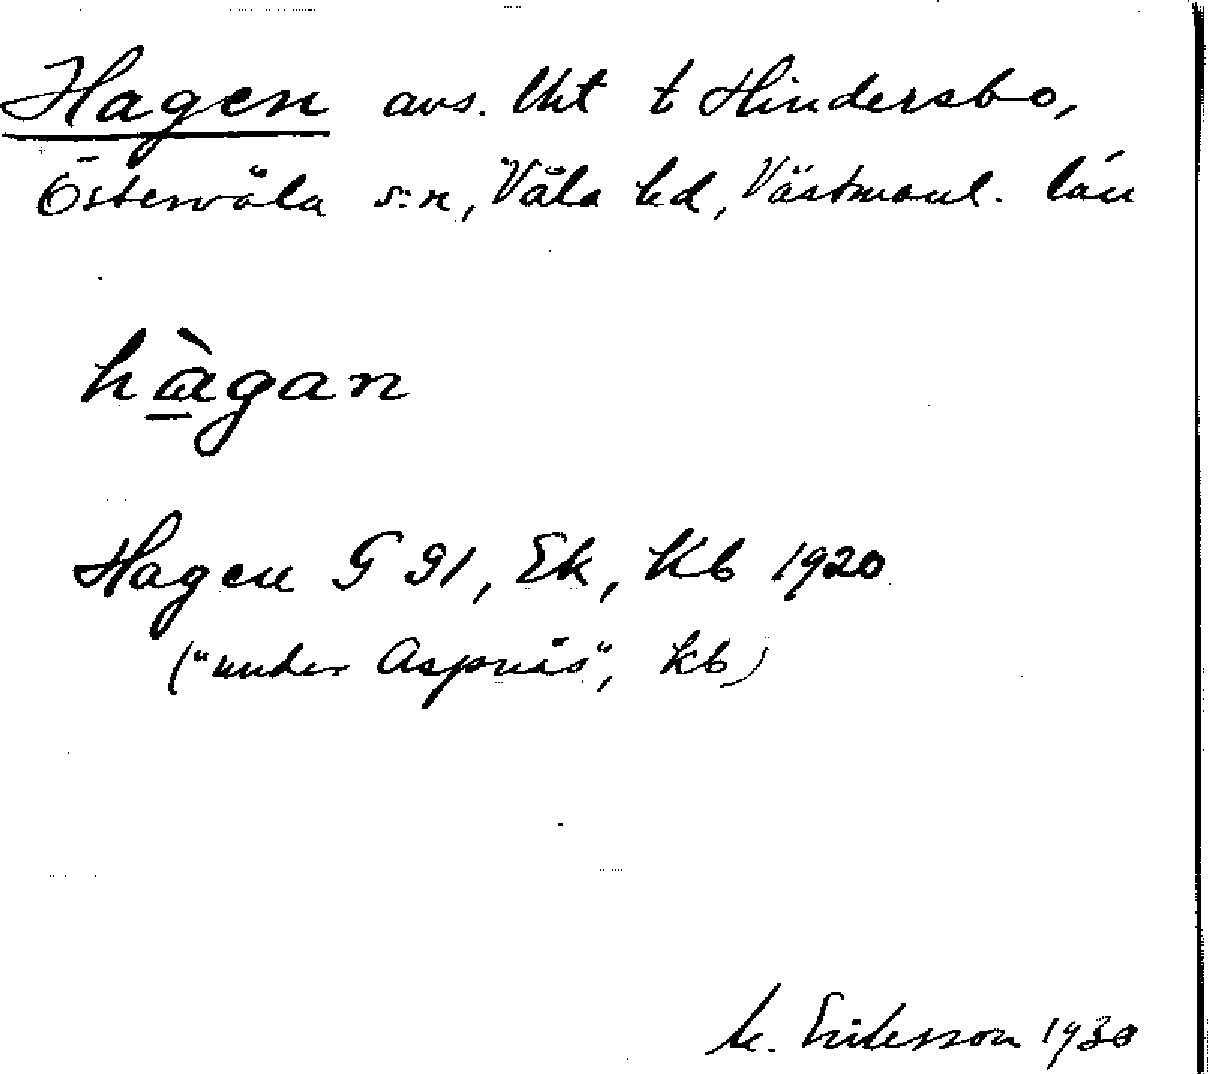 Hagen avs. lht t Hindersbo,
Östervåla s:n, Våla hd, Västmanl. län
hàgan
Hagen G 91, Ek, Kb 1920
("under Aspnäs", kb)
M. Eriksson 1930